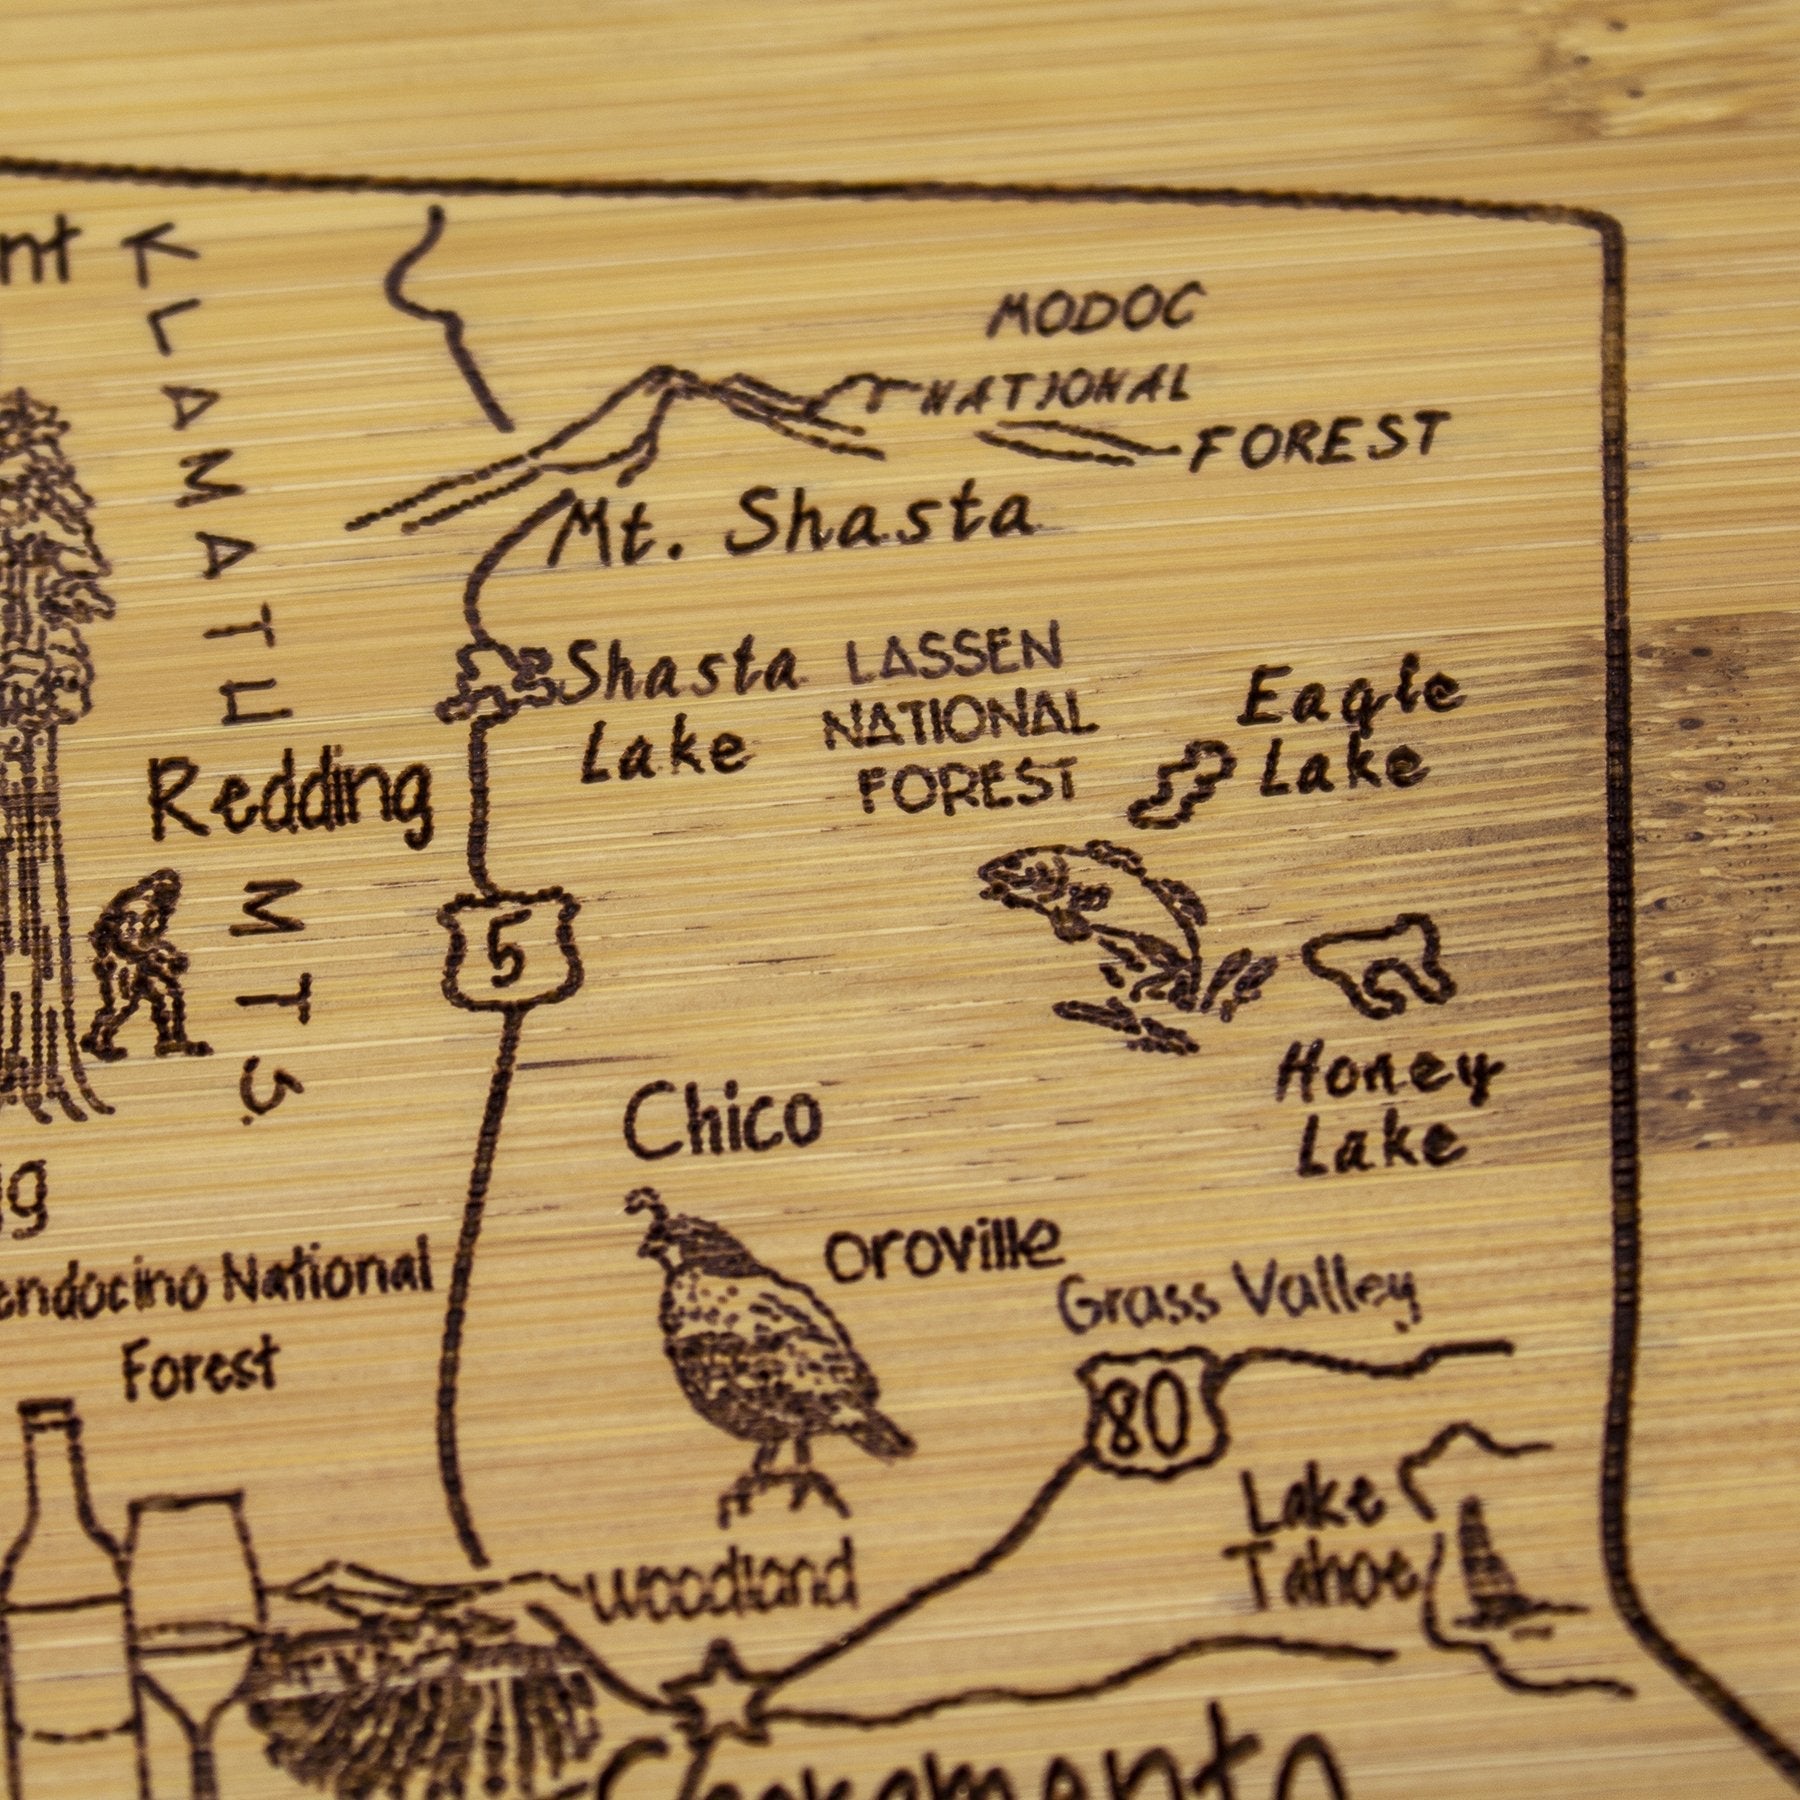 nt
KLAMATH
MTS.
MODOC
NATIONAL
FOREST
Mt. Shasta
Shasta
Lake
LASSEN
NATIONAL
FOREST
Eagle
Lake
Redding
5
Honey
Lake
Chico
g
oroville
endocino National
Forest
Grass Valley
80
Lake
Tahoe
woodland
Sacramento